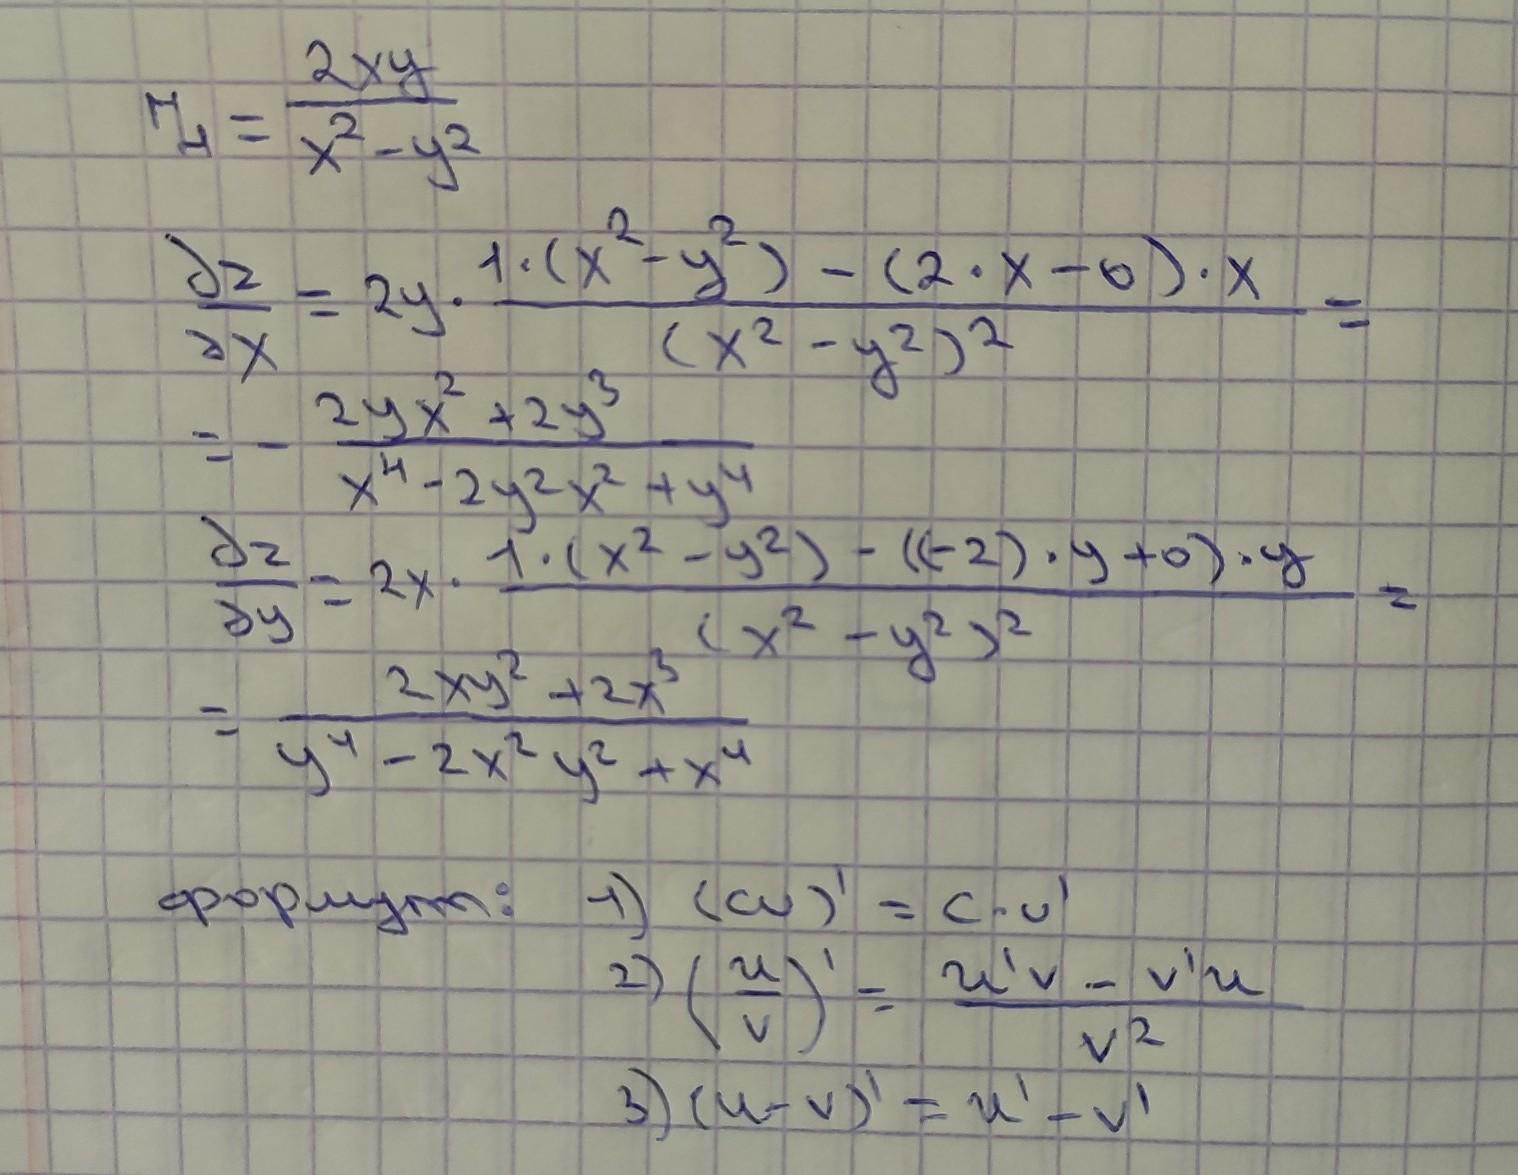 z = 2xy / (x² - y²)
∂z/∂x = 2y · (1·(x² - y²) - (2·x - 0)·x) / (x² - y²)² =
= - (2yx² + 2y³) / (x⁴ - 2y²x² + y⁴)
∂z/∂y = 2x · (1·(x² - y²) - ((-2)·y + 0)·y) / (x² - y²)² =
= (2xy² + 2x³) / (y⁴ - 2x²y² + x⁴)
формулы: 1) (cu)' = c·u'
2) (u/v)' = (u'v - v'u) / v²
3) (u - v)' = u' - v'